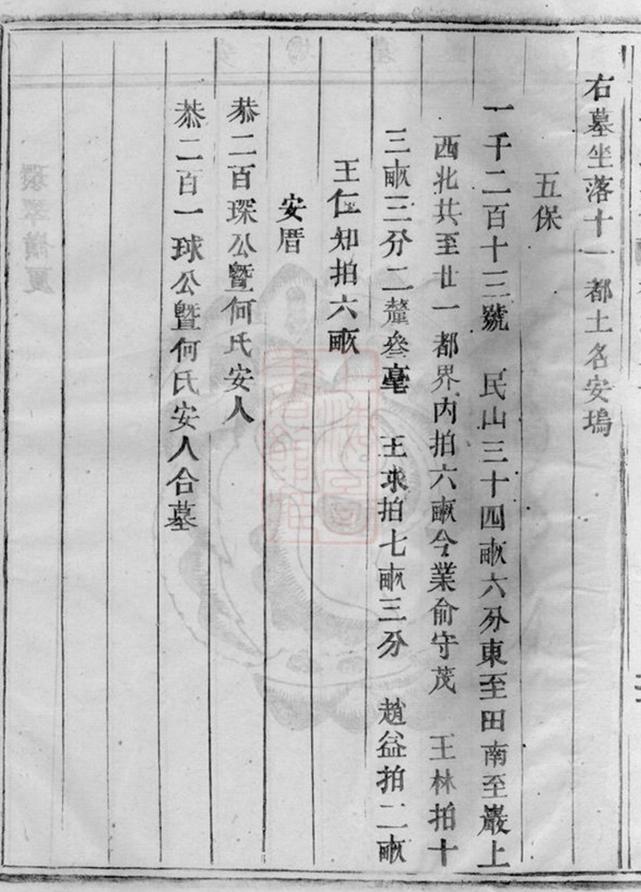 右墓坐落十一都土名安塢
五保
一千二百十三號 民山三十四畝六分東至田南至巖上
西北共至廿一都界內拍六畝今業俞守茂 王林拍十
三畝三分二釐叄毫 王求拍七畝三分 趙益拍二畝
王仁知拍六畝
安厝
恭二百琛公曁何氏安人
恭二百一球公曁何氏安人合墓